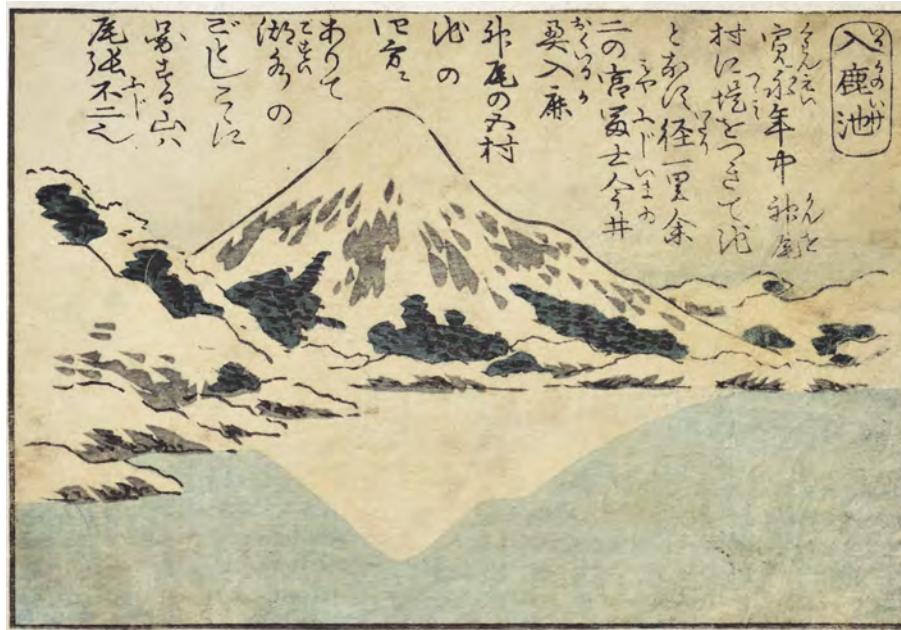 入鹿池
寛永年中神尾
村に堤をつきて池
となす径一里余
二の宮冨士今井
奥入鹿
神尾の五村
池の
四方に
ありて
湖水の
ごとしこゝに
図する山ハ
尾張不二也